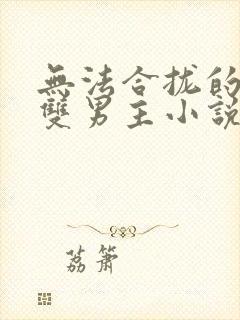 無法合拢的
雙男主小說
荔簫